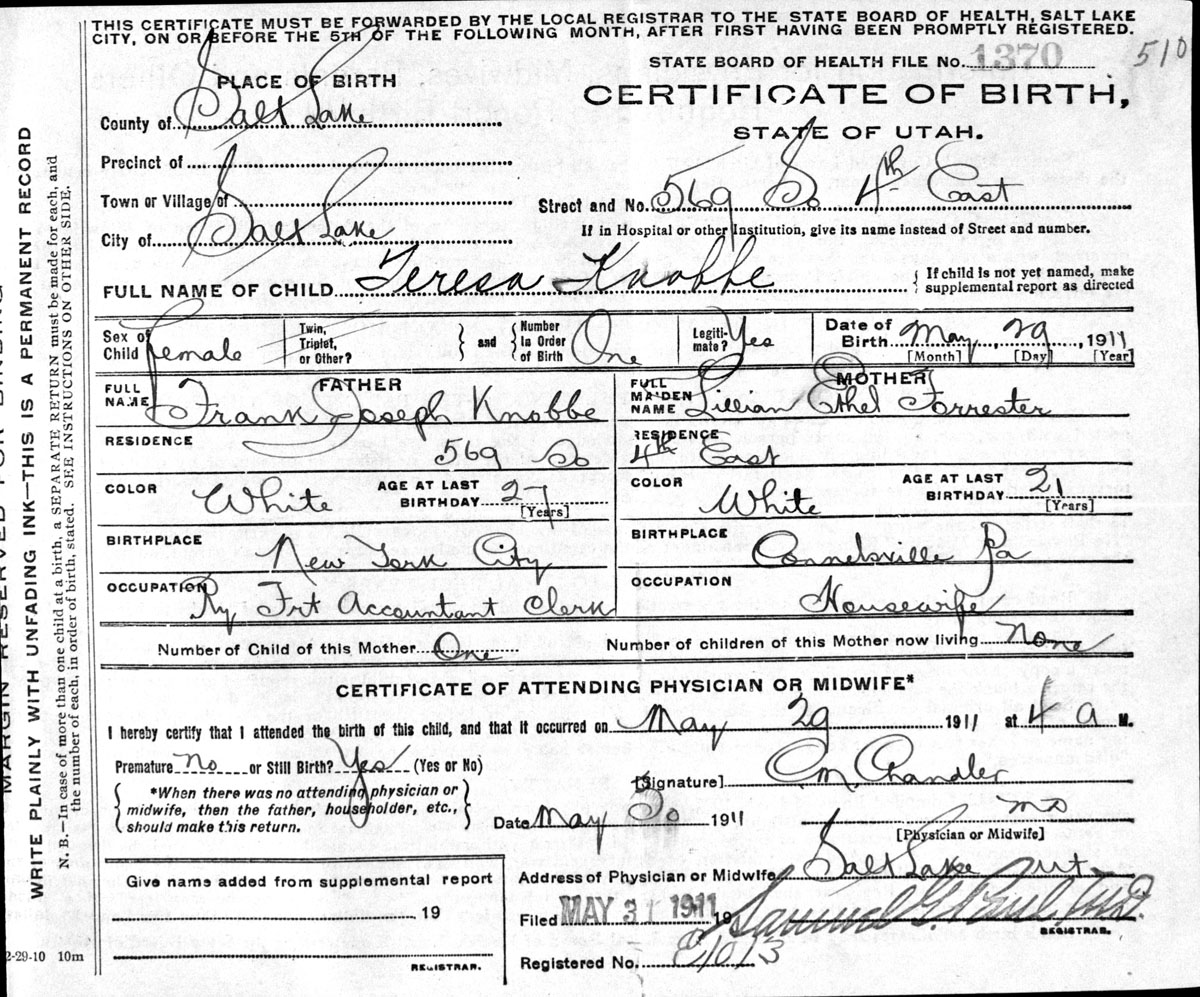 THIS CERTIFICATE MUST BE FORWARDED BY THE LOCAL REGISTRAR TO THE STATE BOARD OF HEALTH, SALT LAKE
CITY, ON OR BEFORE THE 5TH OF THE FOLLOWING MONTH, AFTER FIRST HAVING BEEN PROMPTLY REGISTERED.
STATE BOARD OF HEALTH FILE No. 1370 510
PLACE OF BIRTH
CERTIFICATE OF BIRTH,
County of Salt Lake
STATE OF UTAH.
Precinct of
Town or Village of
Street and No. 569 So 4th East
City of Salt Lake
If in Hospital or other Institution, give its name instead of Street and number.
FULL NAME OF CHILD Teresa Knobbe
If child is not yet named, make
supplemental report as directed
Sex of Child Female
Twin, Triplet, or Other?
and
Number in Order of Birth One
Legiti-mate? Yes
Date of Birth May 29, 1911
[Month] [Day] [Year]
FATHER
FULL NAME Frank Joseph Knobbe
MOTHER
FULL MAIDEN NAME Lillian Ethel Forrester
RESIDENCE 569 So
RESIDENCE 4th East
COLOR White AGE AT LAST BIRTHDAY 27 [Years]
COLOR White AGE AT LAST BIRTHDAY 21 [Years]
BIRTHPLACE New York City
BIRTHPLACE Connelsville Pa
OCCUPATION Ry Frt Accountant Clerk
OCCUPATION Housewife
Number of Child of this Mother One
Number of children of this Mother now living None
CERTIFICATE OF ATTENDING PHYSICIAN OR MIDWIFE*
I hereby certify that I attended the birth of this child, and that it occurred on May 29 1911 at 4 a M.
Premature No or Still Birth? Yes (Yes or No)
[Signature] CM Chandler
*When there was no attending physician or
midwife, then the father, householder, etc.,
should make this return.
Date May 30 1911
MD
[Physician or Midwife]
Address of Physician or Midwife Salt Lake Ut
Give name added from supplemental report
19
REGISTRAR.
Filed MAY 31 1911 19 Samuel G. Paul, M.D.
REGISTRAR.
Registered No. E1013
2-29-10 10m
MARGIN RESERVED FOR BINDING
WRITE PLAINLY WITH UNFADING INK—THIS IS A PERMANENT RECORD
N. B.—In case of more than one child at a birth, a SEPARATE RETURN must be made for each, and
the number of each, in order of birth, stated. SEE INSTRUCTIONS ON OTHER SIDE.